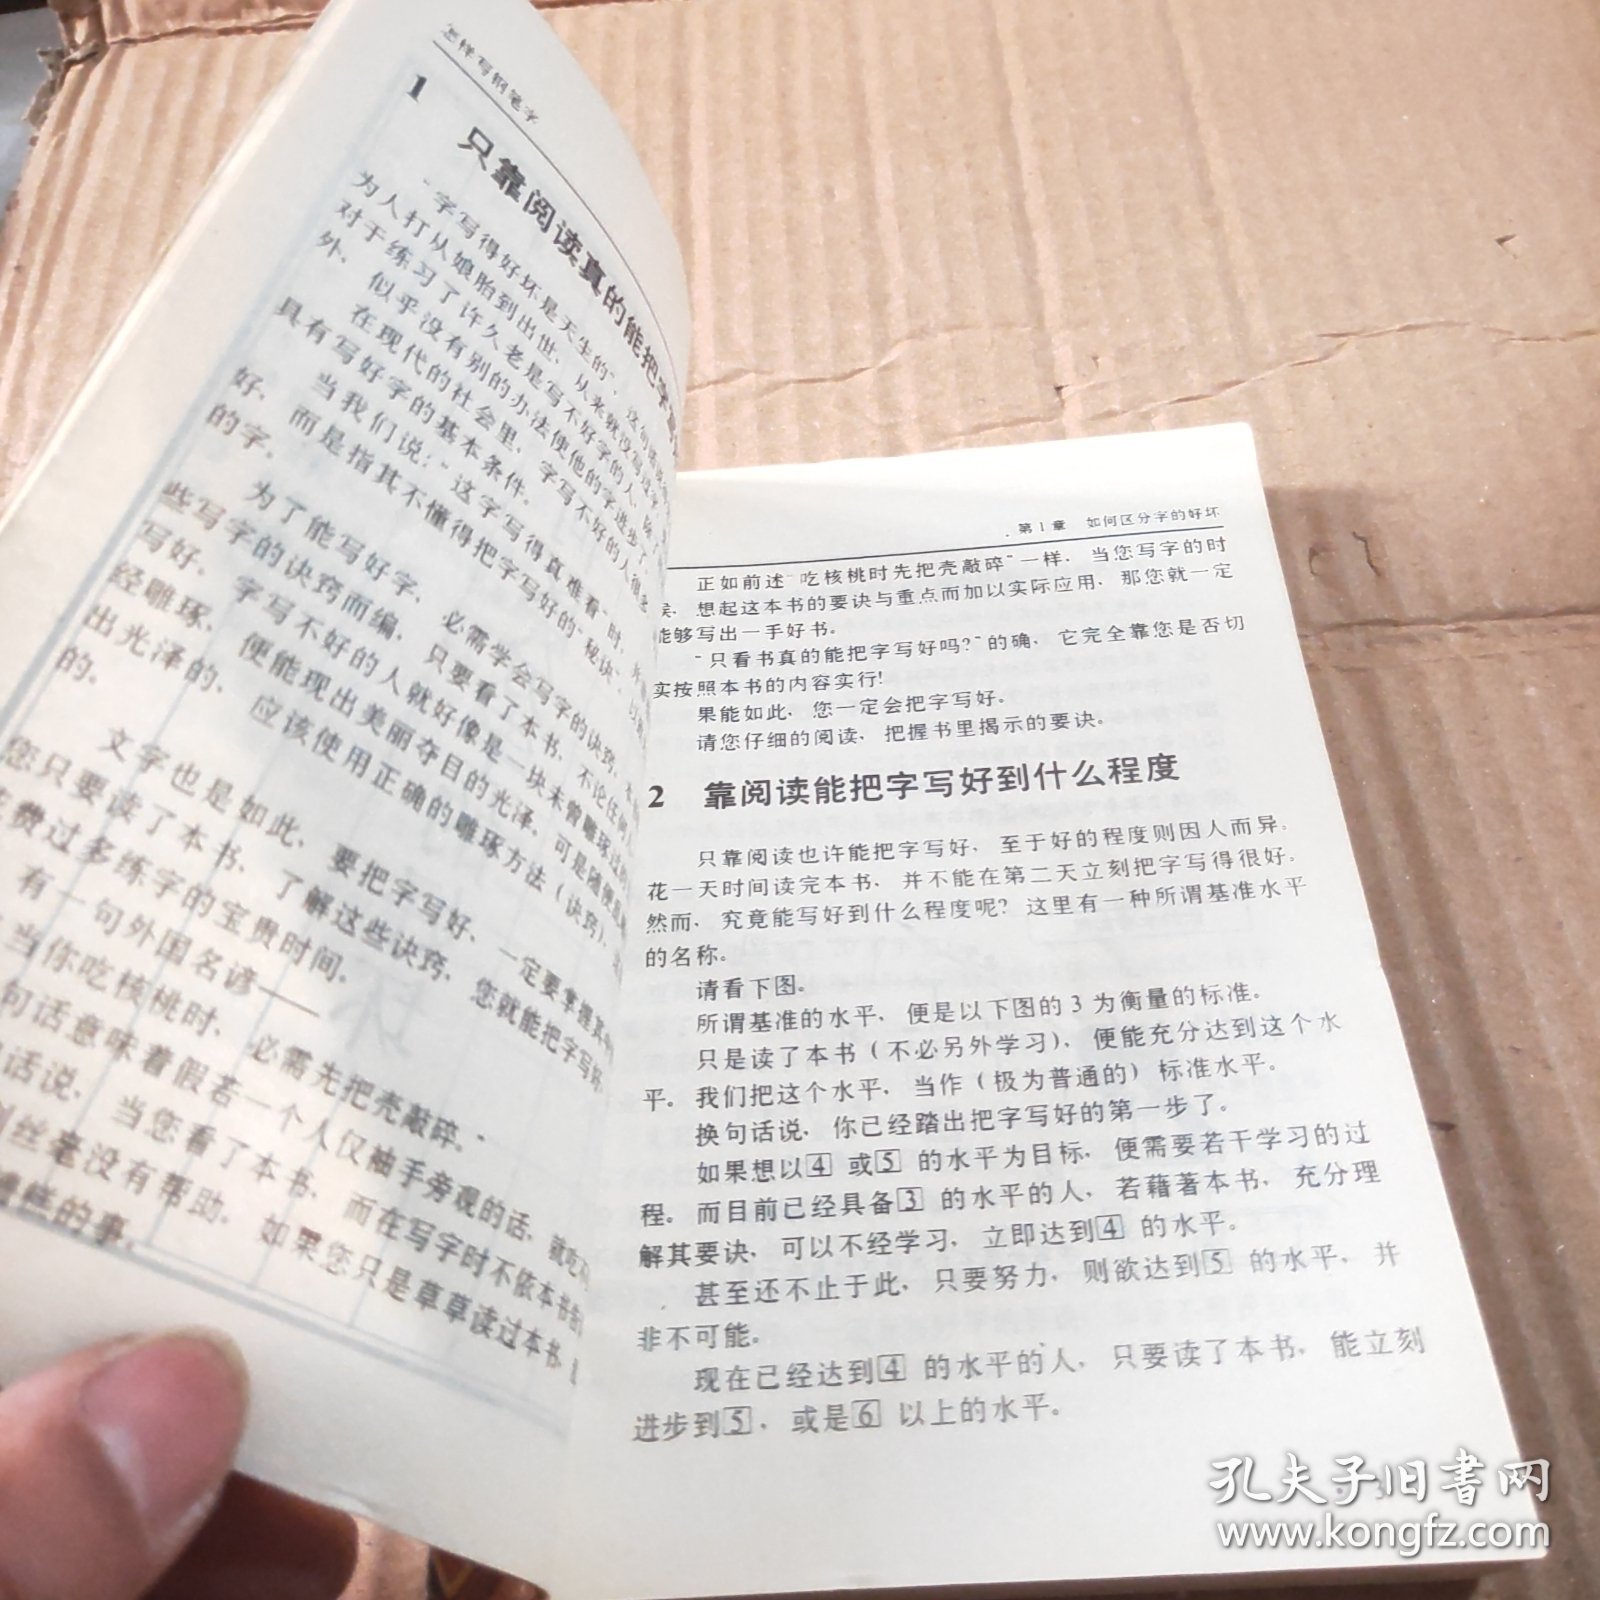 怎样写钢笔字
1
只靠阅读真的能把字写
“字写得好坏是天生的”，这句话
为人打从娘胎到出世，从来就没写过字
对于练习了许久老是写不好字的人，除了
外，似乎没有别的办法使他的字进步了
在现代的社会里，字写不好的人很
具有写好字的基本条件。
当我们说：“这字写得真难看”时，
好，而是指其不懂得把字写好的“秘诀”，
的字。
为了能写好字，必需学会写字的诀窍，
些写字的诀窍而编，只要看了本书，不论任何
写好。字写不好的人就好像是一块未曾雕琢过的
经雕琢，便能现出美丽夺目的光泽，可是随便
出光泽的，应该使用正确的雕琢方法（诀窍），
的。
文字也是如此，要把字写好，一定要掌握其
您只要读了本书，了解这些诀窍，您就能把字写好，
费过多练字的宝贵时间。
有一句外国名谚——
当你吃核桃时，必需先把壳敲碎。”
句话意味着假若一个人仅袖手旁观的话，就吃
话说，当您看了本书，而在写字时不依本书
丝毫没有帮助，如果您只是草草读过本书，
样的事。
第1章 如何区分字的好坏
正如前述“吃核桃时先把壳敲碎”一样，当您写字的时
候，想起这本书的要诀与重点而加以实际应用，那您就一定
能够写出一手好书。
“只看书真的能把字写好吗？”的确，它完全靠您是否切
实按照本书的内容实行！
果能如此，您一定会把字写好。
请您仔细的阅读，把握书里揭示的要诀。
2 靠阅读能把字写好到什么程度
只靠阅读也许能把字写好，至于好的程度则因人而异。
花一天时间读完本书，并不能在第二天立刻把字写得很好。
然而，究竟能写好到什么程度呢？这里有一种所谓基准水平
的名称。
请看下图。
所谓基准的水平，便是以下图的3为衡量的标准。
只是读了本书（不必另外学习），便能充分达到这个水
平。我们把这个水平，当作（极为普通的）标准水平。
换句话说，你已经踏出把字写好的第一步了。
如果想以4或5的水平为目标，便需要若干学习的过
程。而目前已经具备3的水平的人，若藉著本书，充分理
解其要诀，可以不经学习，立即达到4的水平。
甚至还不止于此，只要努力，则欲达到5的水平，并
非不可能。
现在已经达到4的水平的人，只要读了本书，能立刻
进步到5，或是6以上的水平。
3
孔夫子旧书网
www.kongfz.com